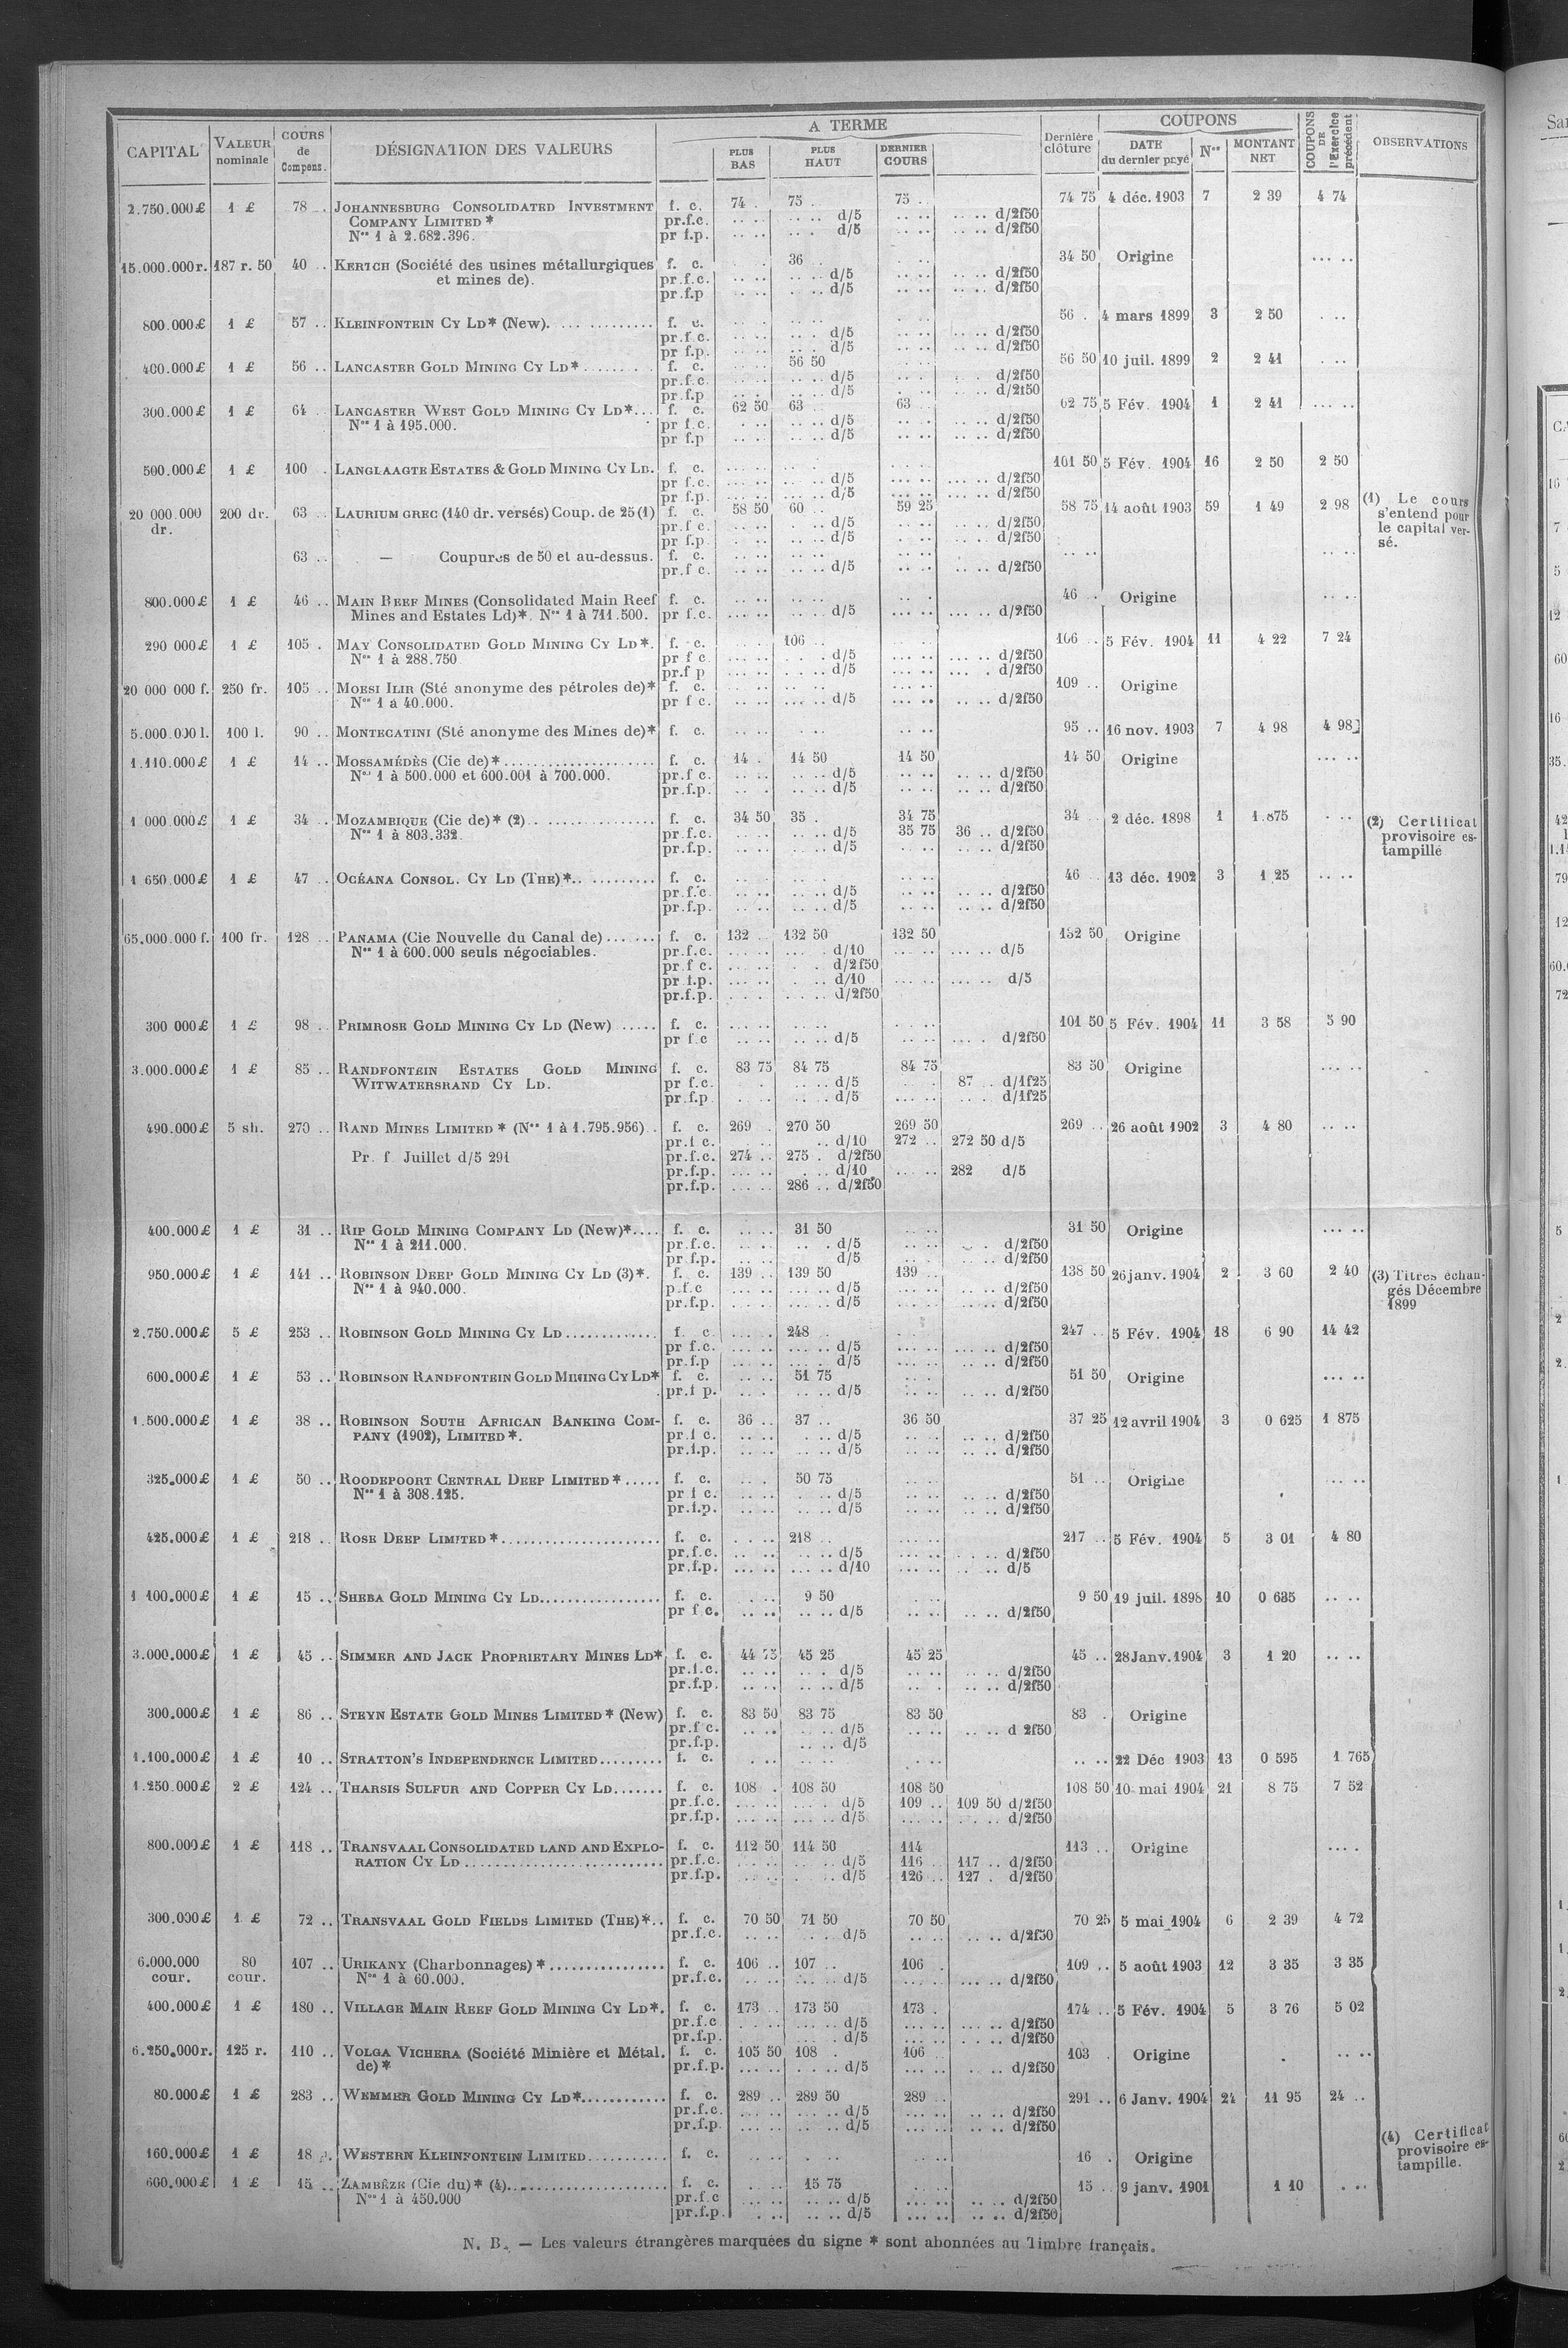 CAPITAL VALEUR nominale COURS de Compens. DÉSIGNATION DES VALEURS A TERME PLUS BAS PLUS HAUT DERNIER COURS Dernière clôture COUPONS DATE du dernier payé Nos MONTANT NET COUPONS DE l'Exercice précédent OBSERVATIONS
2.750.000£ 1 £ 78 .. JOHANNESBURG CONSOLIDATED INVESTMENT f. c. 74 . 75 . 75 .. 74 75 4 déc. 1903 7 2 39 4 74
COMPANY LIMITED * pr.f.c. .. .. .. .. d/5 .. .. .. .. d/2f50
Nos 1 à 2.682.396. pr f.p. .. .. .. . d/5 .. .. .. .. d/2f50
15.000.000r. 187 r. 50 40 .. KERTCH (Société des usines métallurgiques f. c. 36 .. 34 50 Origine ... ..
et mines de). pr.f.c. .. .. .. .. d/5 .. .. .. .. d/2f50
pr.f.p .. .. .. .. d/5 .. .. .. .. d/2f50
800.000£ 1 £ 57 .. KLEINFONTEIN CY LD* (New). f. c. 56 . 4 mars 1899 3 2 50 . ..
pr.f.c. .. .. .. . d/5 .. .. .. .. d/2f50
pr f.p. .. .. .. . d/5 .. .. .. .. d/2f50
400.000£ 1 £ 56 .. LANCASTER GOLD MINING CY LD* f. c. 56 50 56 50 10 juil. 1899 2 2 41 . ..
pr.f.c. .. .. .. .. d/5 .. . d/2f50
pr.f.p .. . .. .. d/5 . .. .. .. d/2f50
300.000£ 1 £ 64 . LANCASTER WEST GOLD MINING CY LD*... f. c. 62 50 63 .. 63 .. 62 75 5 Fév. 1904 1 2 41 ... ..
Nos 1 à 195.000. pr f.c. . .. .. .. d/5 .. . .. .. d/2f50
pr f.p .. .. .. .. d/5 .. .. .. .. d/2f50
500.000£ 1 £ 100 . LANGLAAGTE ESTATES & GOLD MINING CY LD. f. c. 101 50 5 Fév. 1904 16 2 50 2 50
pr f.c. ... .. ... .. d/5 ... .. ... .. d/2f50
pr f.p. ... .. ... .. d/5 ... .. ... .. d/2f50
20 000.000 dr. 200 dr. 63 .. LAURIUM GREC (140 dr. versés) Coup. de 25 (1) f. c. 58 50 60 .. 59 25 58 75 14 août 1903 59 1 49 2 98 (1) Le cours s'entend pour le capital versé.
pr.f c. .. .. . .. d/5 .. .. .. .. d/2f50
pr f.p .. .. .. .. d/5 . .. .. .. d/2f50
63 .. — Coupures de 50 et au-dessus. f. c. .. .. .. .. .. .. .. .. .. ..
pr.f c. .. .. .. .. d/5 .. .. .. .. d/2f50
800.000£ 1 £ 46 .. MAIN REEF MINES (Consolidated Main Reef f. c. 46 .. Origine .. ..
Mines and Estates Ld)*. Nos 1 à 711.500. pr f.c. ... .. .. .. d/5 ... .. ... .. d/2f50
290 000£ 1 £ 105 . MAY CONSOLIDATED GOLD MINING CY LD*. f. c. 106 .. 106 .. 5 Fév. 1904 11 4 22 7 24
Nos 1 à 288.750 pr f c ... .. . . .. d/5 ... .. ... .. d/2f50
pr.f p ... .. .. .. d/5 ... .. ... . d/2f50
20 000 000 f. 250 fr. 105 .. MOESI ILIR (Sté anonyme des pétroles de)* f. c. 109 .. Origine
Nos 1 à 40.000. pr f c. ... .. ... .. d/5 ... .. .. .. d/2f50
5.000.000 l. 100 l. 90 .. MONTECATINI (Sté anonyme des Mines de)* f. c. 95 .. 16 nov. 1903 7 4 98 4 98
1.110.000£ 1 £ 14 .. MOSSAMÉDÈS (Cie de)* f. c. 14 . 14 50 14 50 14 50 Origine ... ..
Nos 1 à 500.000 et 600.001 à 700.000. pr.f c. .. .. .. .. d/5 .. .. .. .. d/2f50
pr.f.p. .. . .. .. d/5 .. .. .. .. d/2f50
1 000 000£ 1 £ 34 .. MOZAMBIQUE (Cie de)* (2) f. c. 34 50 35 . 34 75 34 .. 2 déc. 1898 1 1.875 . .. (2) Certificat provisoire estampillé
Nos 1 à 803.332. pr.f.c. .. .. .. .. d/5 35 75 36 .. d/2f50
pr.f.p. .. .. .. .. d/5 .. .. .. .. d/2f50
1 650.000£ 1 £ 47 .. OCÉANA CONSOL. CY LD (THE)* f. c. 46 .. 13 déc. 1902 3 1 25 .. ..
pr.f.c .. .. .. .. d/5 .. .. .. .. d/2f50
pr.f.p. .. .. .. .. d/5 .. .. .. .. d/2f50
65.000.000 f. 100 fr. 128 .. PANAMA (Cie Nouvelle du Canal de) f. c. 132 .. 132 50 132 50 132 50 Origine
Nos 1 à 600.000 seuls négociables. pr.f.c. ... .. ... . d/10 ... .. ... .. d/5
pr f c. ... .. . .. d/2f50
pr f.p. ... .. .. .. d/10 ... .. ... .. d/5
pr.f.p. . .. .. .. d/2f50
300 000£ 1 £ 98 .. PRIMROSE GOLD MINING CY LD (New) ..... f. c. 101 50 5 Fév. 1904 11 3 58 5 90
pr f.c .. .. .. .. d/5 .. .. ... . d/2f50
3.000.000£ 1 £ 85 .. RANDFONTEIN ESTATES GOLD MINING f. c. 83 75 84 75 84 75 83 50 Origine ... ..
WITWATERSRAND CY LD. pr f.c. . .. .. d/5 . . 87 .. d/1f25
pr.f.p .. .. .. .. d/5 ... .. .. . d/1f25
490.000£ 5 sh. 270 .. RAND MINES LIMITED * (Nos 1 à 1.795.956) f. c. 269 . 270 50 269 50 269 .. 26 août 1902 3 4 80 .. ..
pr.f c. .. .. d/10 272 .. 272 50 d/5
Pr. f Juillet d/5 291 pr.f.c. 274 .. 275 . d/2f50
pr.f.p. ... .. . .. d/10 ... .. 282 d/5
pr.f.p. ... .. 286 .. d/2f50
400.000£ 1 £ 31 .. RIP GOLD MINING COMPANY LD (New)*.... f. c. 31 50 31 50 Origine ... ..
Nos 1 à 211.000. pr.f.c. .. .. .. . d/5 .. .. .. . d/2f50
pr f.p. .. .. .. d/5 .. .. .. .. d/2f50
950.000£ 1 £ 141 .. ROBINSON DEEP GOLD MINING CY LD (3)*. f. c. 139 .. 139 50 139 .. 138 50 26 janv. 1904 2 3 60 2 40 (3) Titres échangés Décembre 1899
Nos 1 à 940.000. p.f.c ... .. ... .. d/5 ... .. ... .. d/2f50
pr.f.p. ... .. ... .. d/5 ... .. .. .. d/2f50
2.750.000£ 5 £ 253 .. ROBINSON GOLD MINING CY LD............. f. c 248 .. 247 .. 5 Fév. 1904 18 6 90 14 42
pr f.c. ... .. ... .. d/5 ... .. ... .. d/2f50
pr.f.p ... .. ... . d/5 ... .. .. .. d/2f50
600.000£ 1 £ 53 .. ROBINSON RANDFONTEIN GOLD MINING CY LD* f. c. 51 75 51 50 Origine ... ..
pr.f p. .. . .. .. d/5 .. . .. .. d/2f50
1.500.000£ 1 £ 38 .. ROBINSON SOUTH AFRICAN BANKING COM- f. c. 36 .. 37 .. 36 50 37 25 12 avril 1904 3 0 625 1 875
PANY (1902), LIMITED*. pr.f c. .. .. . .. d/5 .. .. .. .. d/2f50
pr.f.p. .. .. .. .. d/5 .. .. .. .. d/2f50
325.000£ 1 £ 50 .. ROODEPOORT CENTRAL DEEP LIMITED*..... f. c. 50 75 51 .. Origine .. ..
Nos 1 à 308.125. pr f c. .. .. . .. d/5 .. .. .. .. d/2f50
pr.f.p. .. .. . .. d/5 .. .. .. .. d/2f50
425.000£ 1 £ 218 .. ROSE DEEP LIMITED*...................... f. c. 218 .. 217 .. 5 Fév. 1904 5 3 01 4 80
pr.f.c. .. .. .. .. d/5 ... .. . . .. d/2f50
pr.f.p. ... .. ... .. d/10 ... .. .. .. d/5
1 100.000£ 1 £ 15 .. SHEBA GOLD MINING CY LD................. f. c. 9 50 9 50 19 juil. 1898 10 0 635 .. ..
pr f c. .. .. .. .. d/5 .. .. .. .. d/2f50
3.000.000£ 1 £ 45 .. SIMMER AND JACK PROPRIETARY MINES LD* f. c. 44 75 45 25 45 25 45 .. 28 Janv. 1904 3 1 20 .. ..
pr.f.c. .. .. .. . d/5 .. .. .. .. d/2f50
pr.f.p. .. .. .. .. d/5 .. . .. .. d/2f50
300.000£ 1 £ 86 .. STEYN ESTATE GOLD MINES LIMITED* (New) f. c. 83 50 83 75 83 50 83 . Origine
pr.f c. .. .. .. .. d/5 .. .. .. .. d 2f50
pr.f.p. .. .. d/5
1.100.000£ 1 £ 10 .. STRATTON'S INDEPENDENCE LIMITED......... f. c. .. .. 22 Déc 1903 13 0 595 1 765
1.250.000£ 2 £ 124 .. THARSIS SULFUR AND COPPER CY LD....... f. c. 108 . 108 50 108 50 108 50 10 mai 1904 21 8 75 7 52
pr.f.c. ... .. ... . d/5 109 .. 109 50 d/2f50
pr.f.p. ... .. ... .. d/5 ... .. .. .. d/2f50
800.000£ 1 £ 118 .. TRANSVAAL CONSOLIDATED LAND AND EXPLO- f. c. 112 50 114 50 114 113 .. Origine ... .
RATION CY LD ........................... pr.f.c. .. .. .. .. d/5 116 . 117 .. d/2f50
pr.f.p. .. .. . .. d/5 126 .. 127 . d/2f50
300.000£ 1 £ 72 .. TRANSVAAL GOLD FIELDS LIMITED (THE)*.. f. c. 70 50 71 50 70 50 70 25 5 mai 1904 6 2 39 4 72
pr.f.c. .. .. .. .. d/5 .. .. .. .. d/2f50
6.000.000 cour. 80 cour. 107 .. URIKANY (Charbonnages)*................ f. c. 106 .. 107 .. 106 . 109 .. 5 août 1903 12 3 35 3 35
Nos 1 à 60.000. pr.f.c. .. .. .. .. d/5 ... .. ... .. d/2f50
400.000£ 1 £ 180 .. VILLAGE MAIN REEF GOLD MINING CY LD*. f. c. 173 .. 173 50 173 . 174 .. 5 Fév. 1904 5 3 76 5 02
pr.f.c . .. .. ... .. d/5 ... .. ... .. d/2f50
pr.f.p. . .. .. . .. d/5 ... .. . .. .. d/2f50
6.250.000r. 125 r. 110 .. VOLGA VICHERA (Société Minière et Métal. f. c. 105 50 108 . 106 .. 103 . Origine .. ..
de)* pr.f.p. ... .. .. .. d/5 ... .. .. .. d/2f50
80.000£ 1 £ 283 .. WEMMER GOLD MINING CY LD*............ f. c. 289 .. 289 50 289 .. 291 .. 6 Janv. 1904 24 11 95 24 ..
pr.f.c. ... .. ... .. d/5 ... .. .. .. d/2f50
pr.f.p. ... .. .. .. d/5 ... .. .. .. d/2f50
160.000£ 1 £ 18 .. WESTERN KLEINFONTEIN LIMITED........... f. c. 16 . Origine (4) Certificat provisoire estampille.
600.000£ 1 £ 15 .. ZAMBÈZE (Cie du)* (4)....................... f. c. 15 75 15 .. 9 janv. 1901 1 10 . ..
Nos 1 à 450.000 pr.f.c ... .. .. .. d/5 ... .. .. .. d/2f50
pr.f.p. . .. .. .. d/5 ... .. .. .. d/2f50
N. B. — Les valeurs étrangères marquées du signe * sont abonnées au Timbre français.